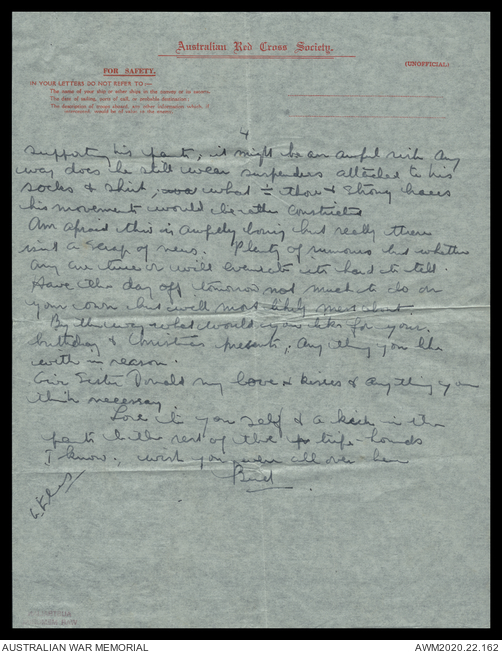 Australian Red Cross Society.
(UNOFFICIAL)
FOR SAFETY.
IN YOUR LETTERS DO NOT REFER TO:—
The name of your ship or other ships in the convoy or its escorts.
The date of sailing, ports of call, or probable destination;
The description of troops aboard, any other information which, if
intercepted, would be of value to the enemy.
4
supporting his pants, it might be an awful risk. Any
way does he still wear suspenders attached to his
socks & shirt, what with those & strong braces
his movements would be rather constricted
Am afraid this is awfully boring but really there
isn't a scrap of news. Plenty of rumours but whether
any are true or will eventuate its hard to tell.
Have the day off tomorrow not much to do on
your own but will most likely mess about.
By the way what would you like for your
birthday & Christmas presents, Any thing you like
with in reason.
Give Sister Donald my love & kisses & anything you
think necessary
Love to your self & a kick in the
pants to the rest of the tripe-hounds
I know, wish you were all over here
Bud
AUSTRALIAN WAR MEMORIAL
AWM2020.22.162